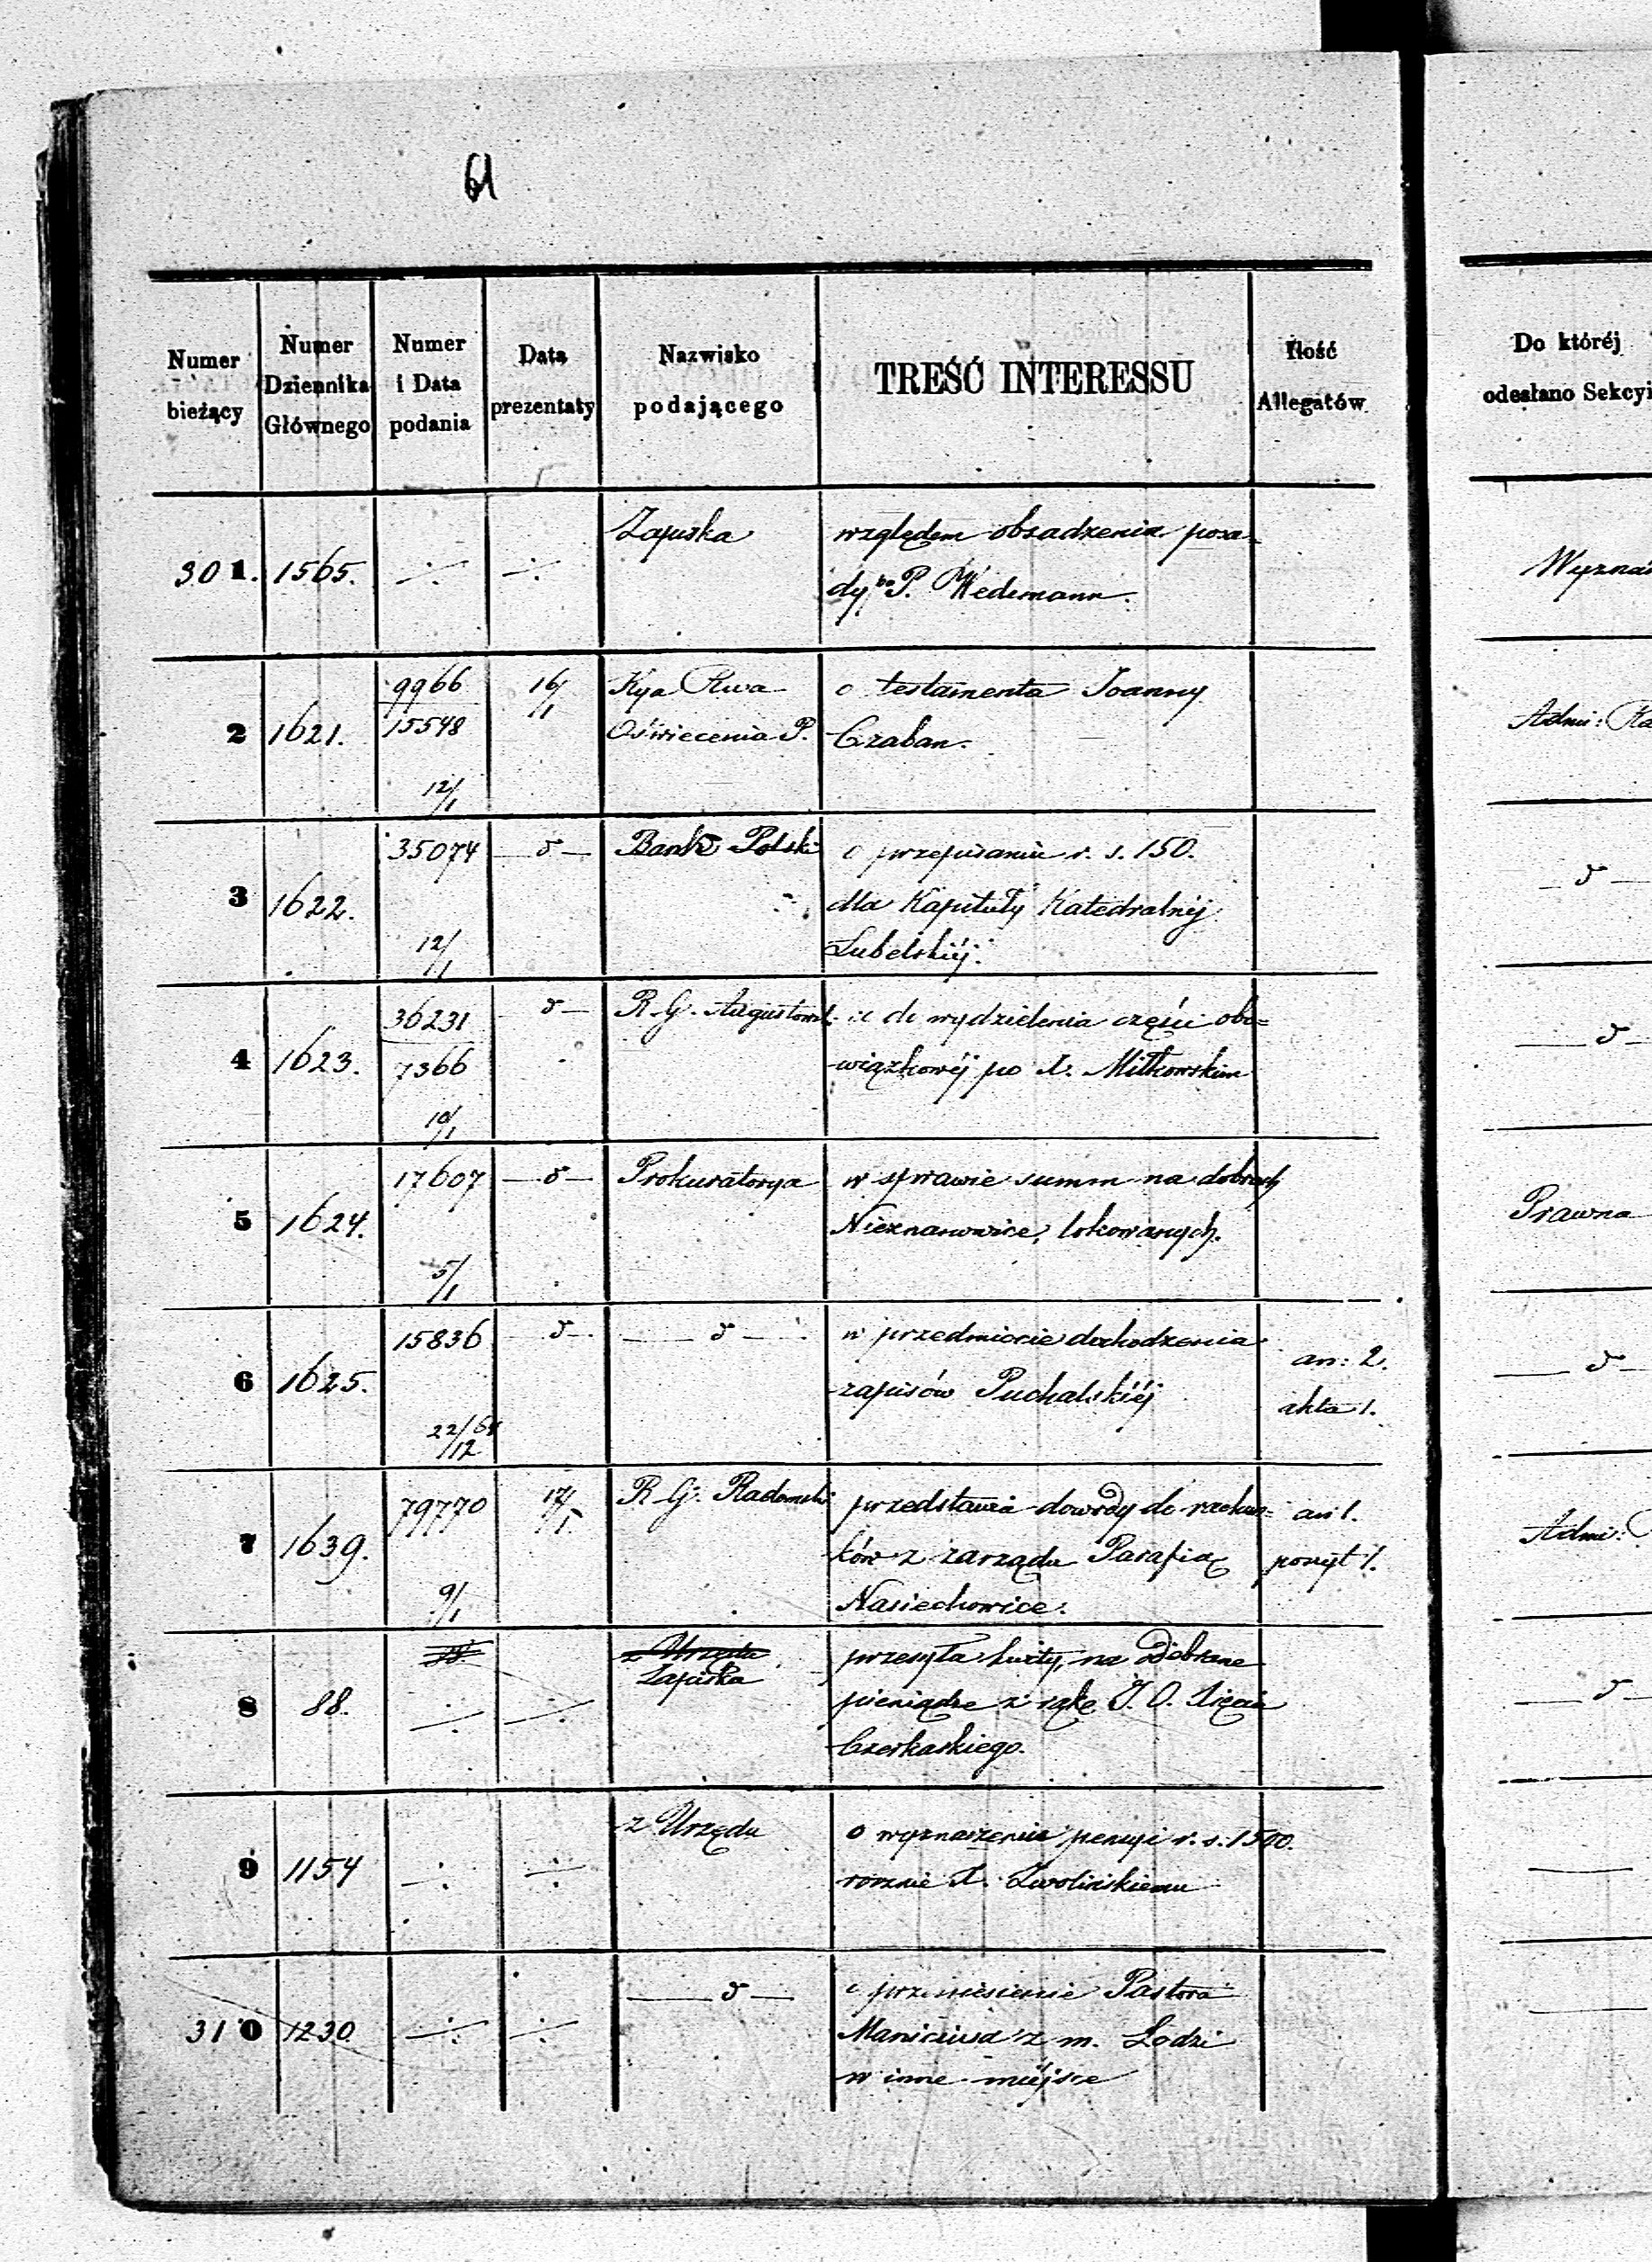 61
Numer bieżący
Numer Dziennika Głównego
Numer i Data podania
Data prezentaty
Nazwisko podającego
TREŚĆ INTERESSU
Ilość Allegatów
Do któréj odesłano Sekcyi
301. 1565. Zapiska względem obsadzenia posa-
dy po P. Wedemann.
2 1621. 9966 16/1 Kya Rwa o testamencie Joanny
15548 Oświecenia P. Czaban.
12/1
Admi:
3 1622. 35074 — d — Bank Polski o przepisaniu r. s. 150.
dla Kapituły Katedralnéj
12/1 Lubelskiéj.
— d —
4 1623. 36231 d — R. G. Augustowsk. do wydzielenia części obo=
7366 wiązkowéj po X. Miłkowskim
10/1
— d —
5 1624. 17607 — d — Prokuratorya w sprawie summ na dobrach
Nieznanowice, lokowanych.
5/1
Prawna
6 1625. 15836 — d — — d — w przedmiocie dochodzenia an: 2.
zapisów Puchalskiéj akta 1.
22/12
— d —
7 1639. 79770 17/1 R. G. Radomski przedstawia dowody do rachun= an 1.
ków z zarządu Parafią
9/1 Nasiechowice.
Admi:
8 88. z Urzędu przesyła kwity, na
Zapiska pieniądze z rąk J. O. Xięcia
Czerkaskiego.
— d —
9 1154 z Urzędu o wyznaczenie pensyi r. s. 1500.
rocznie X. Zwolińskiemu
310 1230 — d — o przeniesienie Pastora
z m. Łodzi
w inne miéjsce